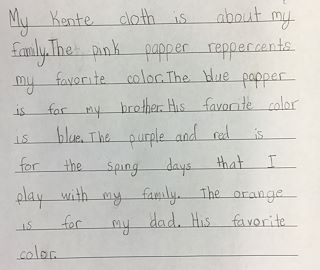 My Kente cloth is about my
family. The pink papper reppercents
my favorite color. The blue papper
is for my brother. His favorite color
is blue. The purple and red is
for the sping days that I
play with my family. The orange
is for my dad. His favorite
color.